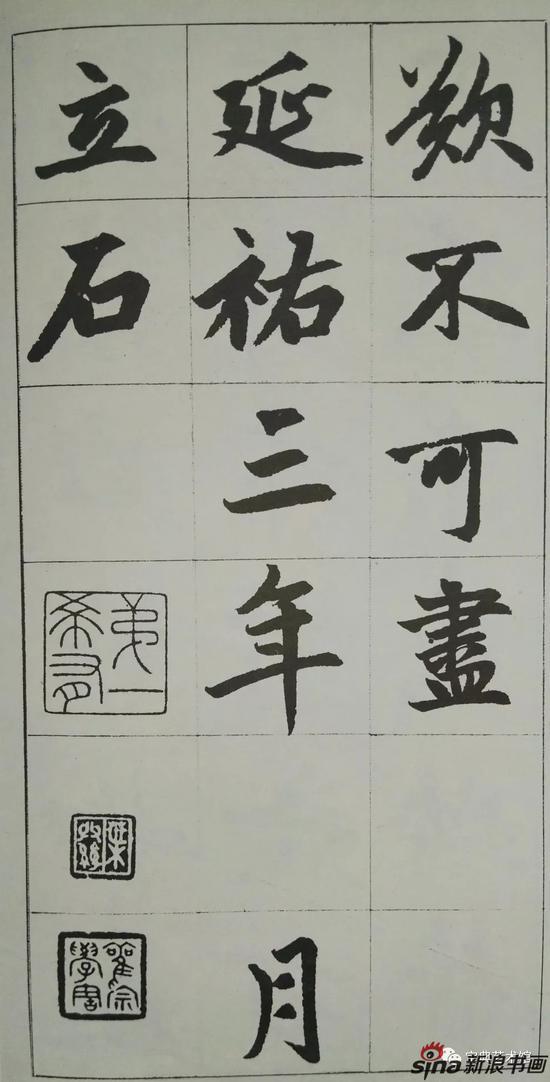 歎不可盡
延祐三年 月
立石
第一
希有
sina新浪书画